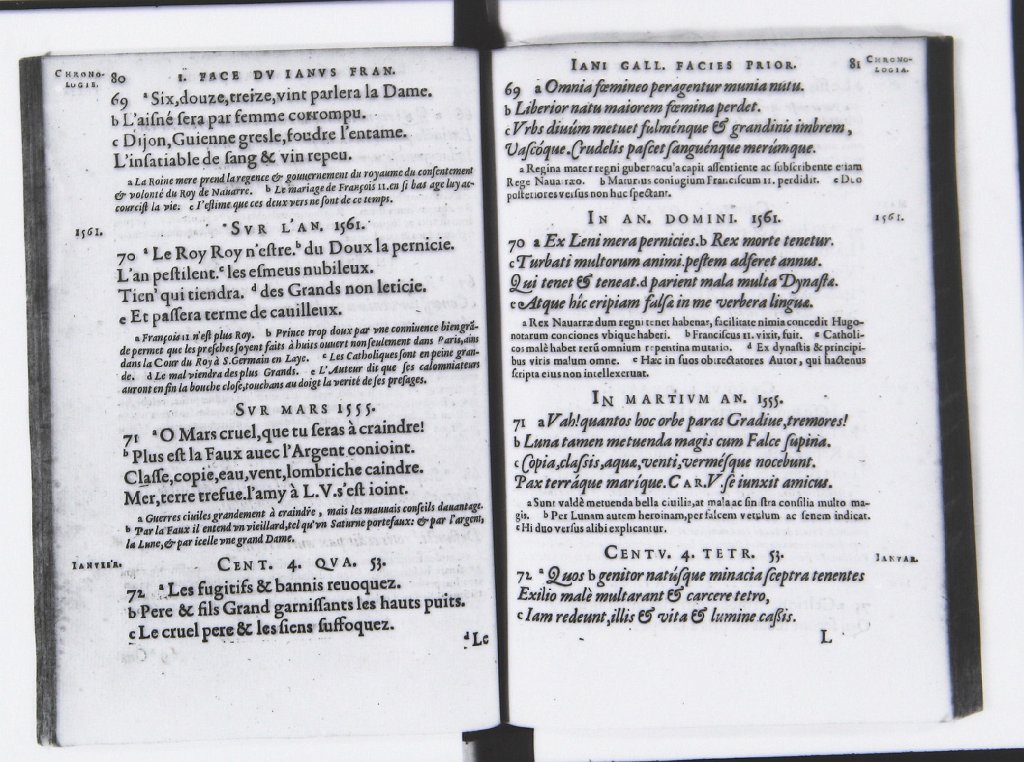 CHRONO-
LOGIE.
80 I. FACE DV IANVS FRAN.
69 a Six,douze,treize,vint parlera la Dame.
b L'aisné sera par femme corrompu.
c Dijon,Guienne gresle,foudre l'entame.
L'insatiable de sang & vin repeu.
a La Roine mere prend la regence & gouuernement du royaume du consentement
& volonté du Roy de Nauarre. b Le mariage de François II. en si bas age luy ac-
courcist la vie. c I'estime que ces deux vers ne sont de ce temps.
1561. SVR L'AN. 1561.
70 a Le Roy Roy n'estre. b du Doux la pernicie.
L'an pestilent. c les esmeus nubileux.
Tien' qui tiendra. d des Grands non leticie.
e Et passera terme de cauilleux.
a François II n'est plus Roy. b Prince trop doux par vne conniuence biengrā-
de permet que les presches soyent faits à huis ouuert non seulement dans Paris, ains
dans la Cour du Roy à S. Germain en Laye. c Les Catholiques sont en peine gran-
de. d Le mal viendra des plus Grands. e L'Auteur dit que ses calomniateurs
auront en fin la bouche close, touchans au doigt la verité de ses presages.
SVR MARS 1555.
71 a O Mars cruel, que tu seras à craindre!
b Plus est la Faux auec l'Argent conioint.
Classe, copie, eau, vent, lombriche caindre.
Mer, terre trefue. l'amy à L.V. s'est ioint.
a Guerres ciuiles grandement à craindre, mais les mauuais conseils dauantage.
b Par la Faux il entend vn vieillard, tel qu'vn Saturne portefaux: & par l'argent,
la Lune, & par icelle vne grand Dame.
IANVIER. CENT. 4. QVA. 53.
72 a Les fugitifs & bannis reuoquez.
b Pere & fils Grand garnissants les hauts puits.
c Le cruel pere & les siens suffoquez.
d Le
IANI GALL. FACIES PRIOR. 81
CHRONO-
LOGIA.
69 a Omnia fœmineo peragentur munia nutu.
b Liberior natu maiorem fœmina perdet.
c Vrbs diuûm metuet fulménque & grandinis imbrem,
Vascóque. Crudelis pascet sanguénque merúmque.
a Regina mater regni gubernacula capit assentiente ac subscribente etiam
Rege Nauarræo. b Maturius coniugium Franciscum II. perdidit. c Duo
posteriores versus non huc spectant.
IN AN. DOMINI. 1561. 1561.
70 a Ex Leni mera pernicies. b Rex morte tenetur.
c Turbati multorum animi. pestem adferet annus.
Qui tenet & teneat. d parient mala multa Dynastæ.
e Atque hîc eripiam falsæ in me verbera linguæ.
a Rex Nauarræ dum regni tenet habenas, facilitate nimia concedit Hugo-
notarum conciones vbique haberi. b Franciscus II. vixit, fuit. c Catholi-
cos malè habet rerû omnium repentina mutatio. d Ex dynastis & principi-
bus viris malum omne. e Hæc in suos obtrectatores Autor, qui hactenus
scripta eius non intellexerunt.
IN MARTIVM AN. 1555.
71 a Vah! quantos hoc orbe paras Gradiue, tremores!
b Luna tamen metuenda magis cum Falce supina.
c Copia, classis, aquæ, venti, vermésque nocebunt.
Pax terráque marique. CAR. V. se iunxit amicus.
a Sunt valdè metuenda bella ciuilia, at mala ac sinistra consilia multo ma-
gis. b Per Lunam autem heroinam, per falcem vetulum ac senem indicat.
c Hi duo versus alibi explicantur.
CENTV. 4. TETR. 53. IANVAR.
72 a Quos b genitor natúsque minacia sceptra tenentes
Exilio malè multarant & carcere tetro,
c Iam redeunt, illis & vita & lumine cassis.
L